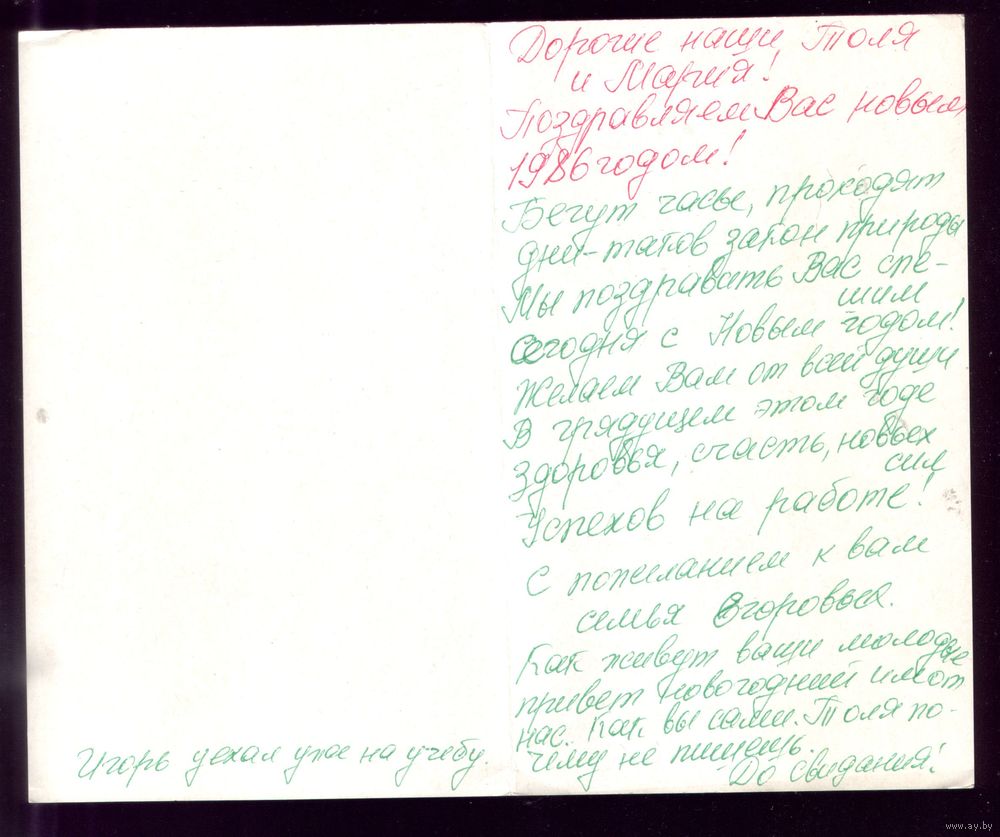 Дорогие наши Толя
и Мария!
Поздравляем Вас новым
1986 годом!
Бегут часы, проходят
дни-таков закон природы
Мы поздравить Вас спе-
шим
Сегодня с Новым годом!
Желаем Вам от всей души
В грядущем этом годе
Здоровья, счасть, новых
сил
Успехов на работе!
С пожеланием к вам
семья Егоровых.
Как живут ваши молодые
привет новогодний им от
нас. Как вы сами. Толя по-
чему не пишешь.
До свидания!
Игорь уехал уже на учебу.
www.ay.by